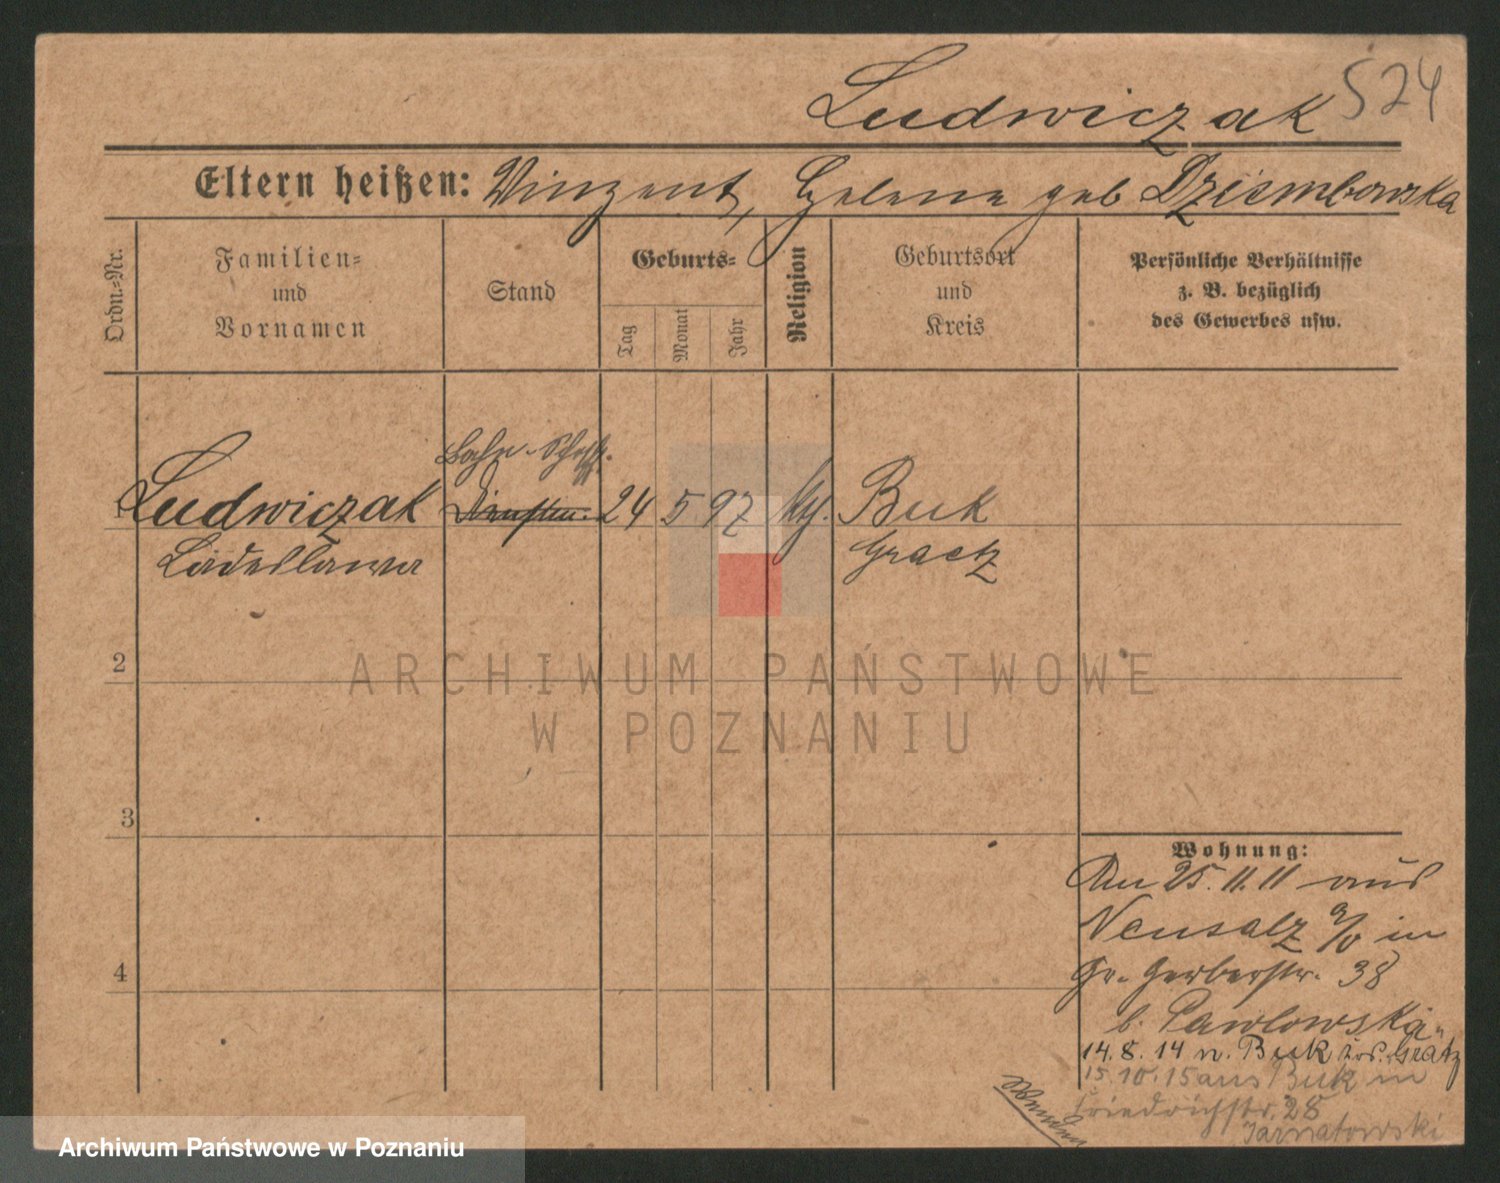 Ludwiczak 524
Eltern heißen: Vinzent, Helene geb Dziembowska
Ordn.-Nr.
Familien-
und
Vornamen
Stand
Geburts-
Tag
Monat
Jahr
Religion
Geburtsort
und
Kreis
Persönliche Verhältnisse
z. B. bezüglich
des Gewerbes usw.
1 Ludwiczak 24 5 97 kth. Buk
Ladislawa Graetz
2
3
4
ARCHIWUM PAŃSTWOWE
W POZNANIU
Wohnung:
Am 25.11.11 aus
Neusalz a/o in
Gr. Gerberstr. 38
b. Pawlowska
14.8.14 n. Buk Grätz
15.10.15 aus Buk in
Friedrichstr. 28
Jarnatowski
Wenden
Archiwum Państwowe w Poznaniu